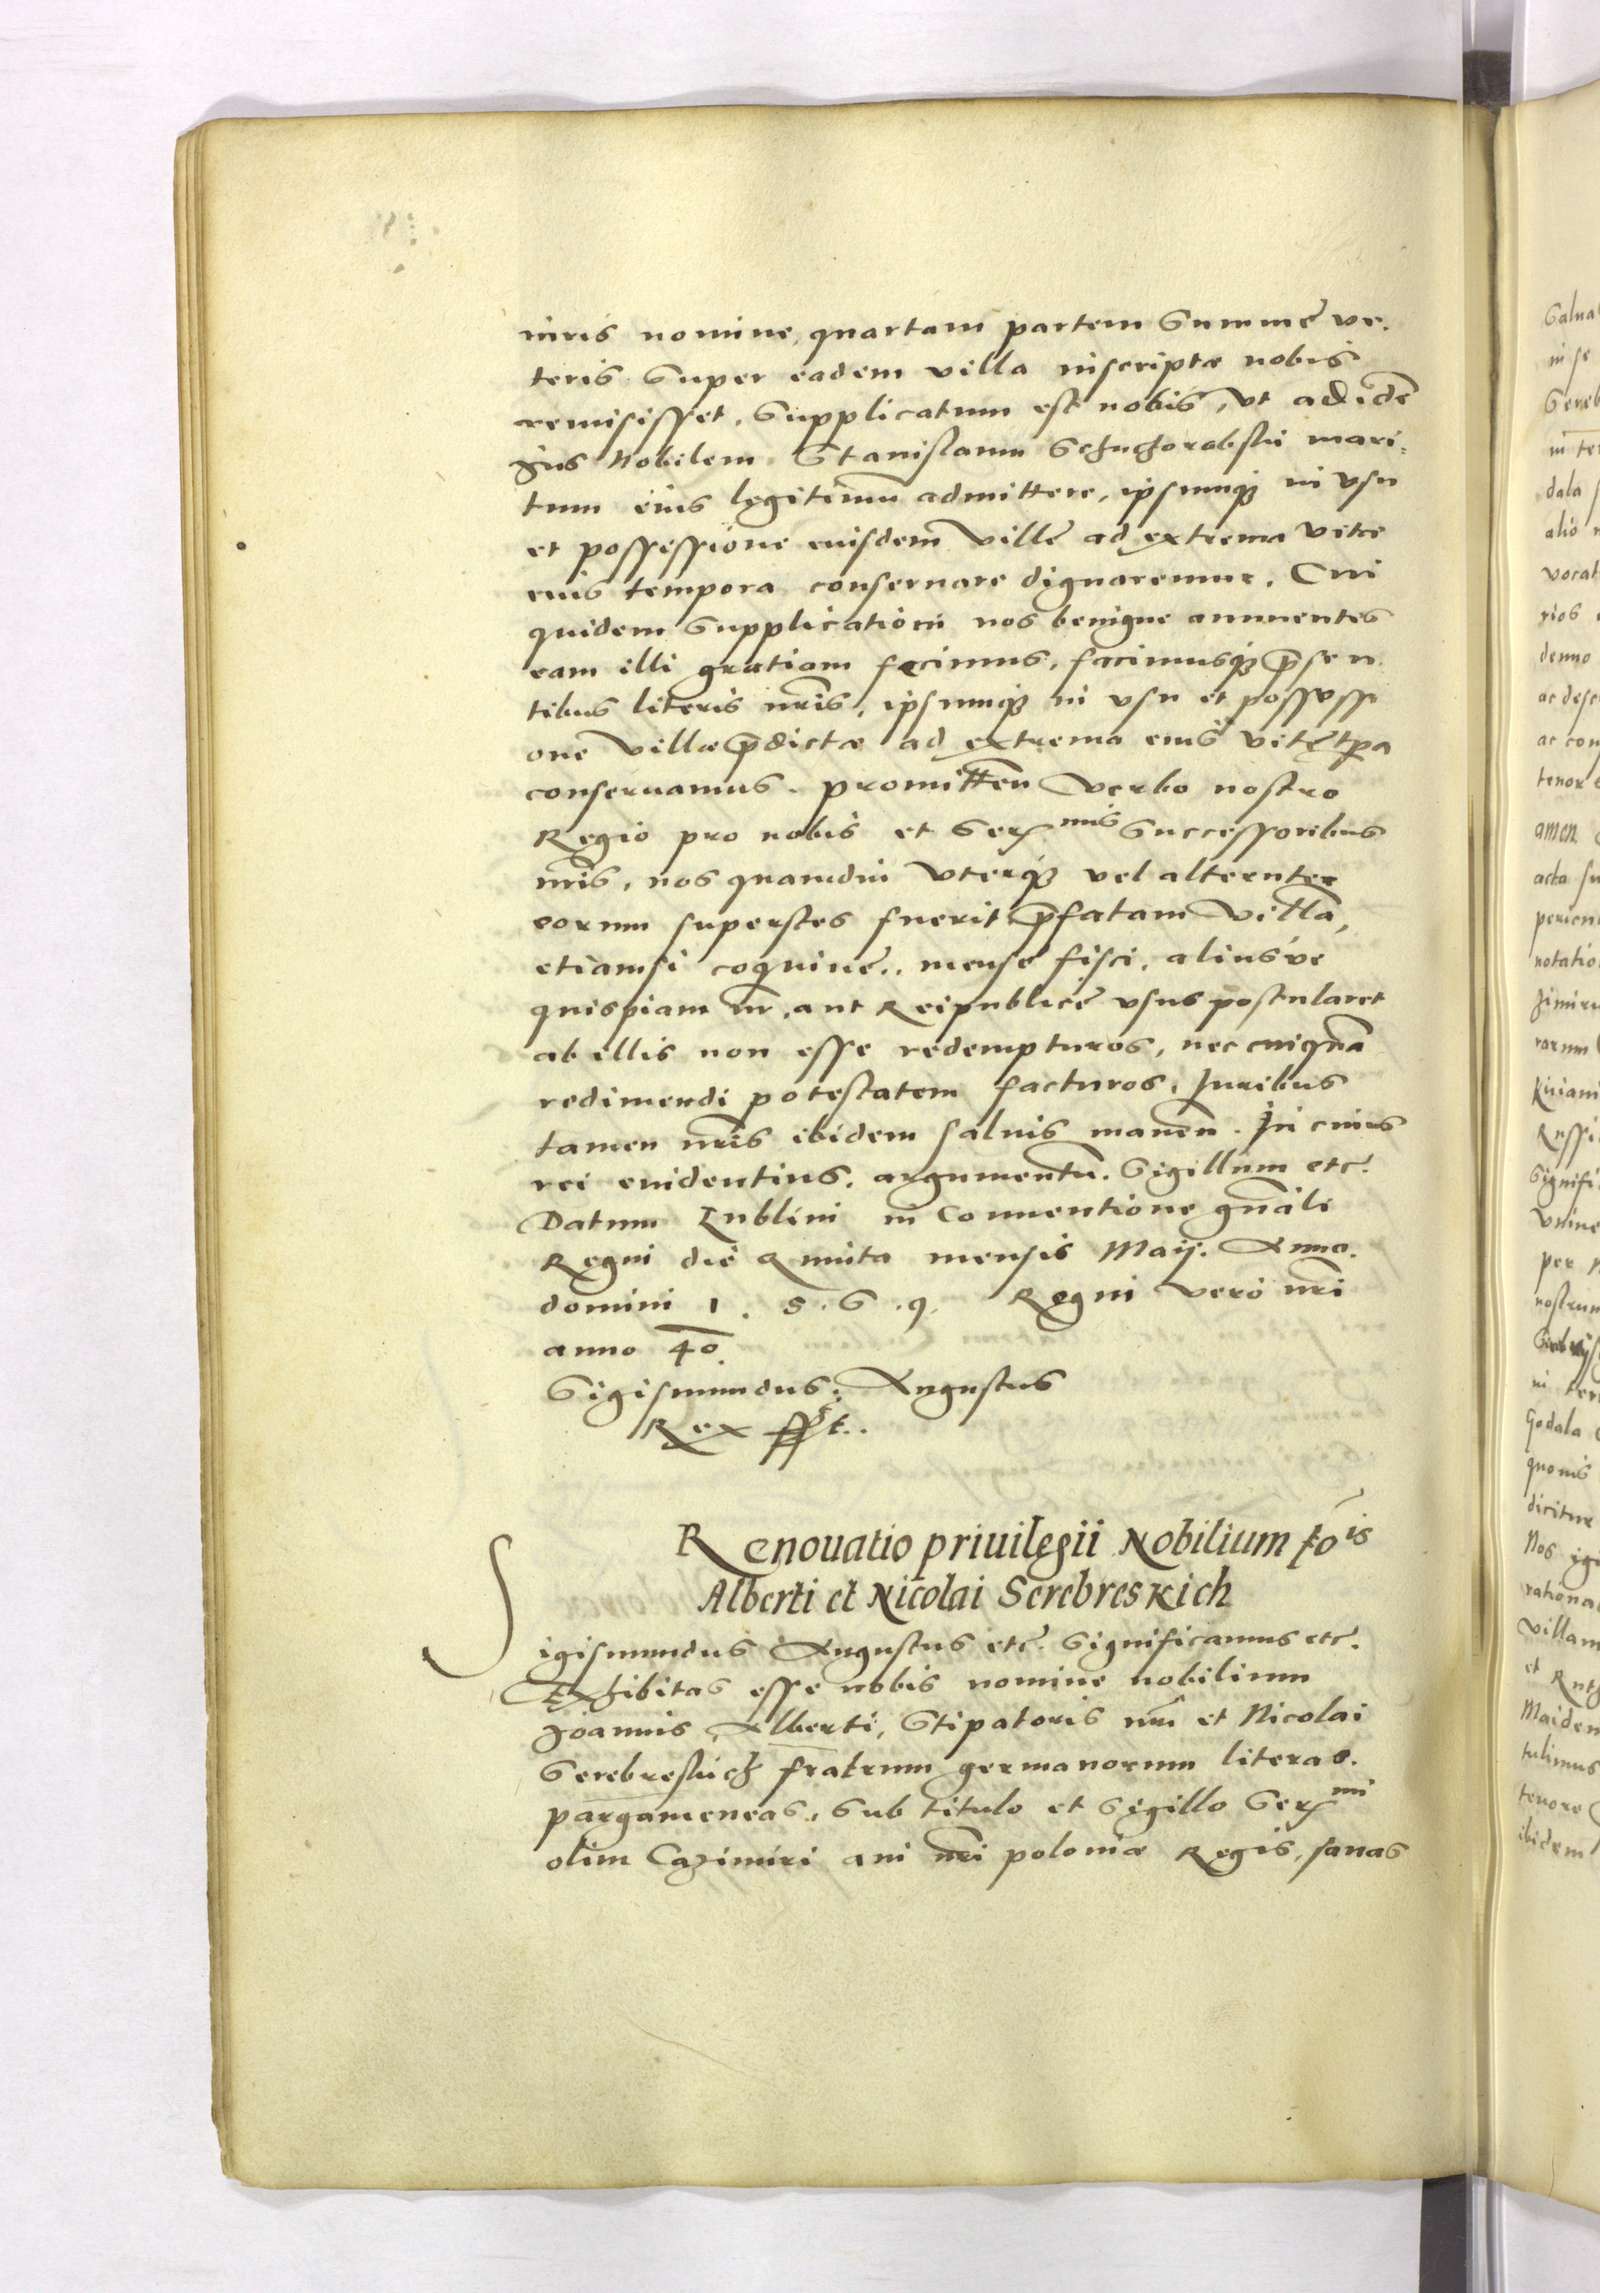 iuris nomine, quartam partem Summe ve.
teris Super eadem villa inscriptæ nobis
remisisset, Supplicatum est nobis, vt ad idē
Ius Nobilem Stanislaum mari:
tum eius legitimū admittere, ipsumq₃ in vsu
et possessione eiusdem Ville ad extrema vitæ
eius tempora conseruare dignaremur. Cui
quidem Supplicationi nos benigne annuentes
eam illi gratiam fecimus, facimusq₃ p̄sen
tibus literis nr̄is, ipsumq₃ in vsu et possessi
one Villæ p̄dictæ ad extrema eius vitę tp̄a
conseruamus. promitten̄ Verbo nostro
Regio pro nobis et Ser^mis Successoribus
nr̄is, nos quamdiu vterq₃ vel alteruter
eorum superstes fuerit p̄fatam Villā,
etiamsi coquine, mense fisci, aliusve
quispiam nr̄, aut Reipublice vsus postularet
ab illis non esse redempturos, nec cuiquā
redimendi potestatem facturos. Iuribus
tamen nr̄is ibidem saluis manen̄. In cuius
rei euidentius. argumentū. Sigillum etc.
Datum Lublini in Conuentione gn̄ali
Regni die Quinta mensis Maij. Anno.
domini 1.5.6.9. Regni vero nr̄i
anno 40.
Sigismundus Augustus
Rex sst.
Renouatio priuilegii Nobilium Io^is
Alberti et Nicolai Serebreskich
Sigismundus Augustus etc. Significamus etc.
Exhibitas esse nobis nomine nobilium
Joannis, Alberti, Stipatoris nr̄i et Nicolai
Serebreskich fratrum germanorum literas.
pargameneas, Sub titulo et Sigillo Ser^mi
olim Cazimiri aui nr̄i poloniæ Regis, sanas